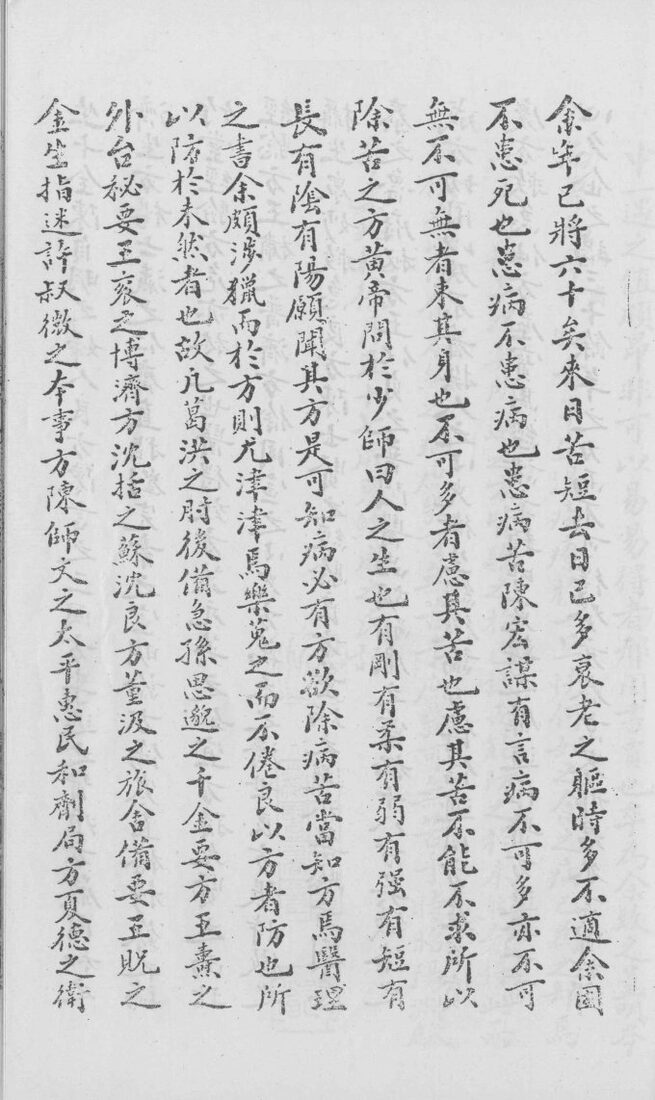 余年已將六十矣來日苦短去日已多衰老之軀時多不適余固
不患死也患病不患病也患病苦陳宏謀有言病不可多亦不可
無不可無者束其身也不可多者慮其苦也慮其苦不能不求所以
除苦之方黃帝問於少師曰人之生也有剛有柔有弱有强有短有
長有陰有陽願聞其方是可知病必有方欲除病苦當知方焉醫理
之書余頗涉獵而於方則尤津津焉樂蒐之而不倦良以方者防也所
以防於未然者也故凡葛洪之肘後備急孫思邈之千金要方王燾之
外台秘要王袞之博濟方沈括之蘇沈良方董汲之旅舍備要王貺之
全生指迷許叔微之本事方陳師文之太平惠民和劑局方夏德之衛